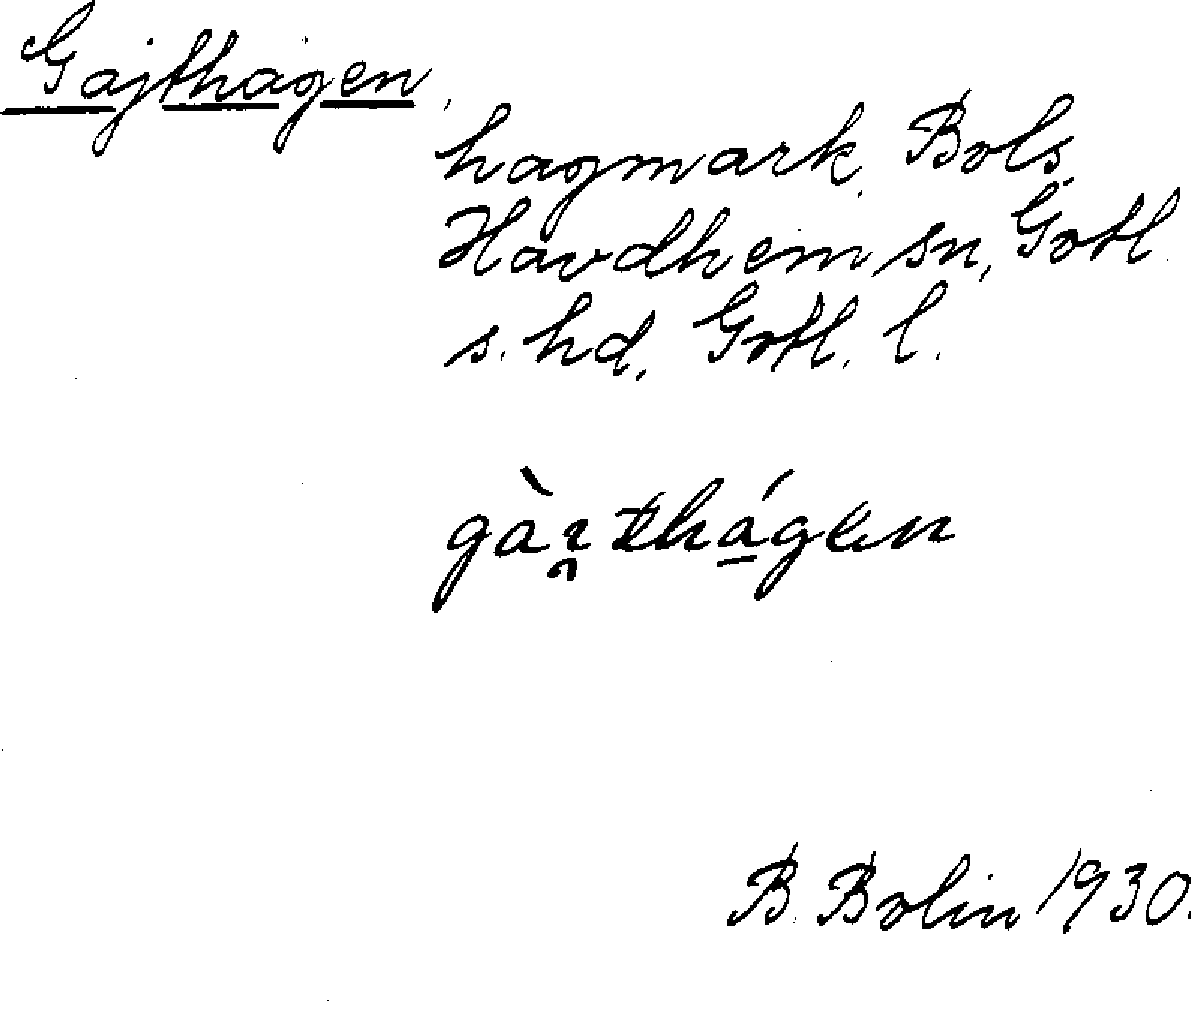 Gajthagen,
hagmark, Bols,
Havdhem sn, Gotl.
s. hd, Gotl. l.
B. Bolin 1930.